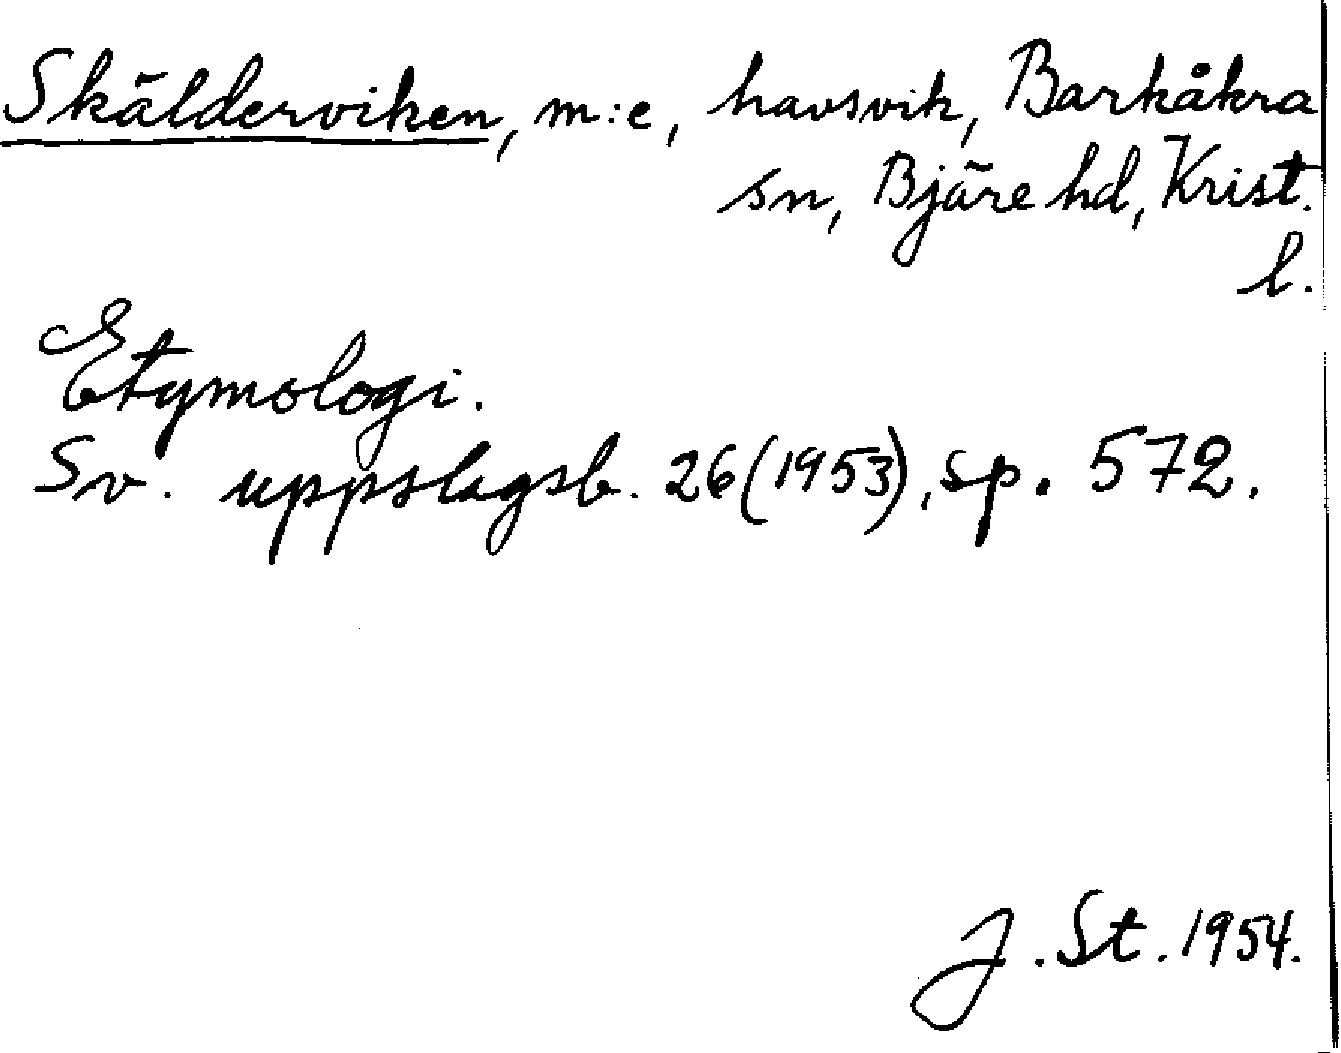 Skälderviken, m:e, havsvik, Barkåkra
sn, Bjäre hd, Krist.
l.
Etymologi.
Sv. uppslagsb. 26(1953), sp. 572.
J. St. 1954.